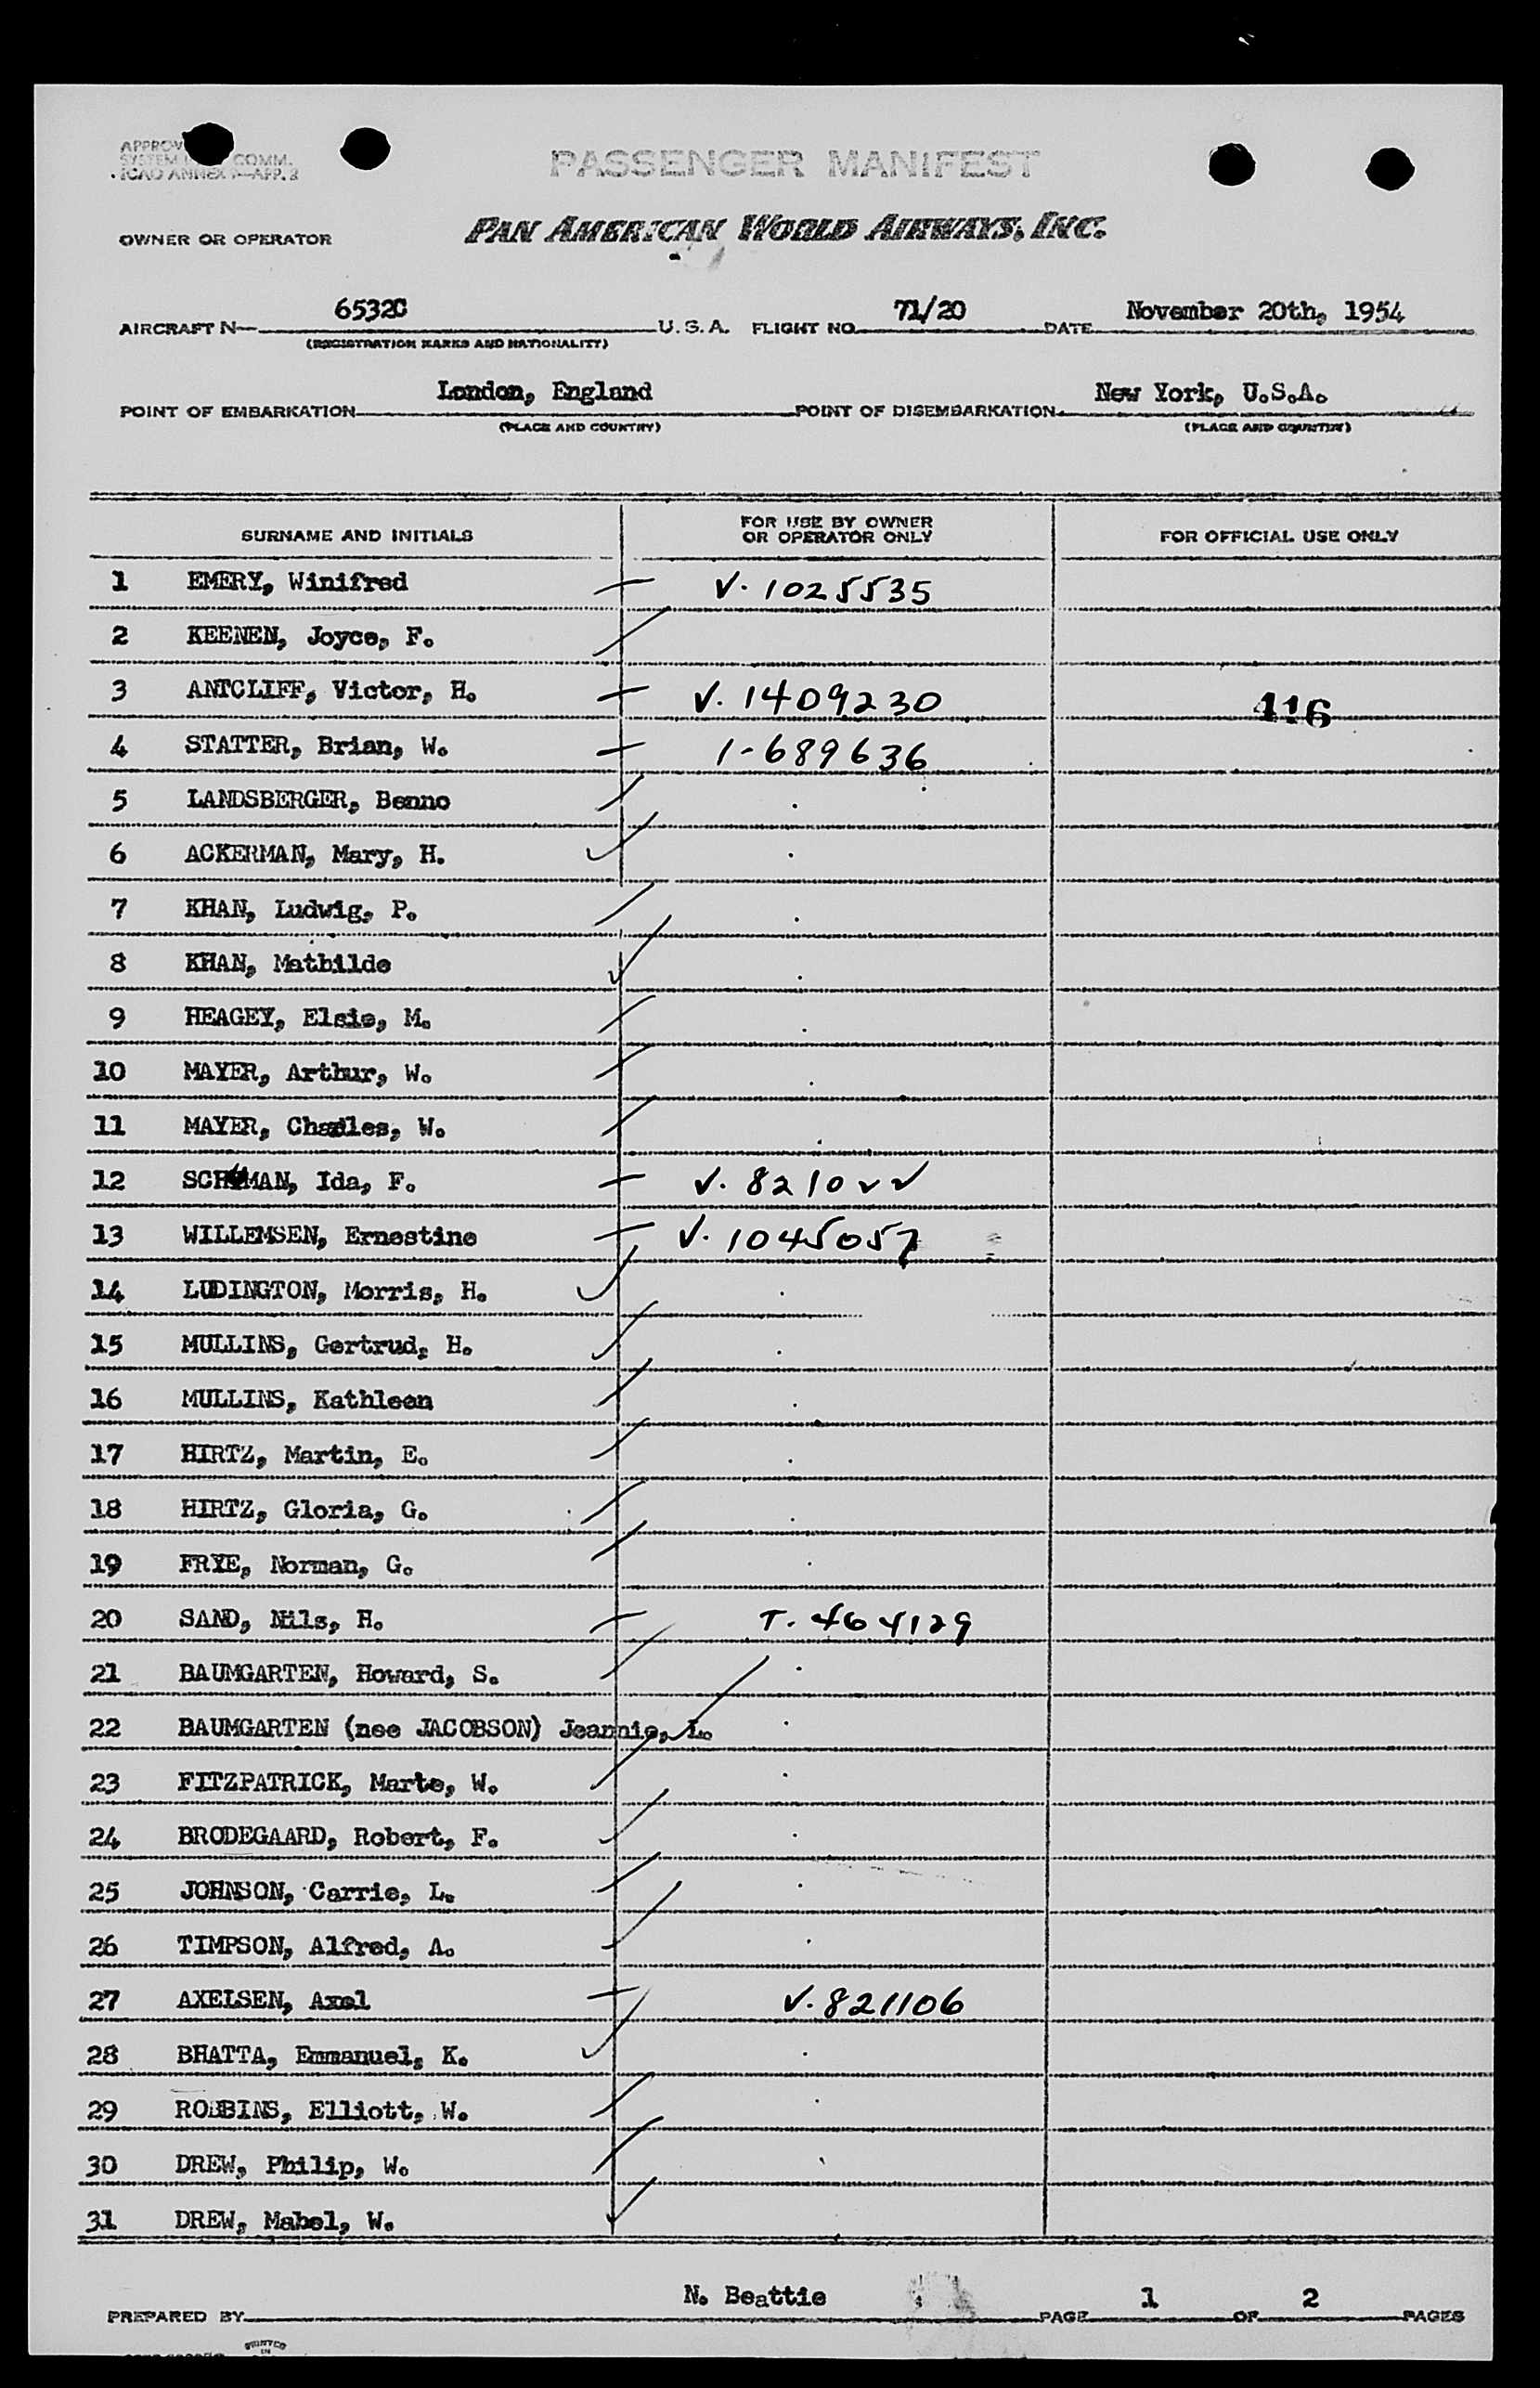 PASSENGER MANIFEST
SYSTEM COMM.
ICAO ANNEX 9—APP. 2
OWNER OR OPERATOR PAN AMERICAN WORLD AIRWAYS, INC.
AIRCRAFT N— 6532C U.S.A. FLIGHT NO. 71/20 DATE November 20th, 1954
(REGISTRATION MARKS AND NATIONALITY)
POINT OF EMBARKATION London, England POINT OF DISEMBARKATION New York, U.S.A.
(PLACE AND COUNTRY) (PLACE AND COUNTRY)
SURNAME AND INITIALS FOR USE BY OWNER OR OPERATOR ONLY FOR OFFICIAL USE ONLY
1 EMERY, Winifred V. 1025535
2 KEENEN, Joyce, F.
3 ANTCLIFF, Victor, H. V. 1409230 416
4 STATTER, Brian, W. 1-689636
5 LANDSBERGER, Benno
6 ACKERMAN, Mary, H.
7 KHAN, Ludwig, P.
8 KHAN, Mathilde
9 HEAGEY, Elsie, M.
10 MAYER, Arthur, W.
11 MAYER, Charles, W.
12 SCHUMAN, Ida, F. V. 821022
13 WILLEMSEN, Ernestine V. 1045057
14 LUDINGTON, Morris, H.
15 MULLINS, Gertrud, H.
16 MULLINS, Kathleen
17 HIRTZ, Martin, E.
18 HIRTZ, Gloria, G.
19 FRYE, Norman, G.
20 SAND, Nils, H. T. 464129
21 BAUMGARTEN, Howard, S.
22 BAUMGARTEN (nee JACOBSON) Jeannie, L.
23 FITZPATRICK, Marte, W.
24 BRODEGAARD, Robert, F.
25 JOHNSON, Carrie, L.
26 TIMPSON, Alfred, A.
27 AXELSEN, Axel V. 821106
28 BHATTA, Emmanuel, K.
29 ROBBINS, Elliott, W.
30 DREW, Philip, W.
31 DREW, Mabel, W.
PREPARED BY N. Beattie PAGE 1 OF 2 PAGES
PRINTED IN